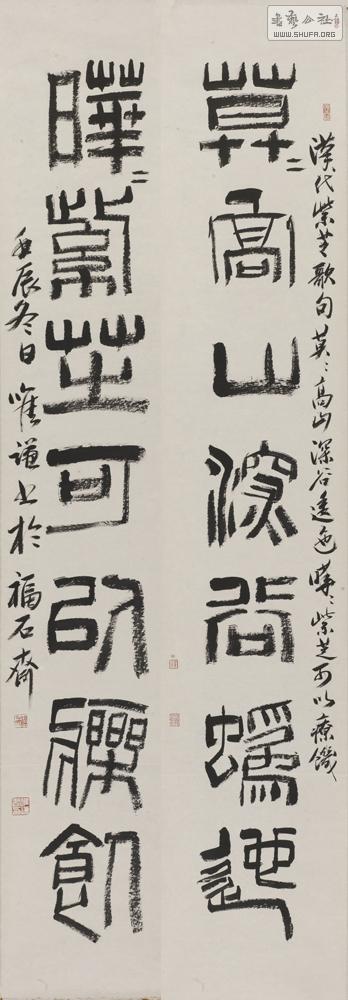 書藝公社
WWW.SHUFA.ORG
漢代紫芝歌句莫〻高山深谷逶迤曄〻紫芝可以療饑
莫〻高山深谷蟡迤
曄〻紫芝可以𤻲飢
壬辰冬日唯謙书於福石齋